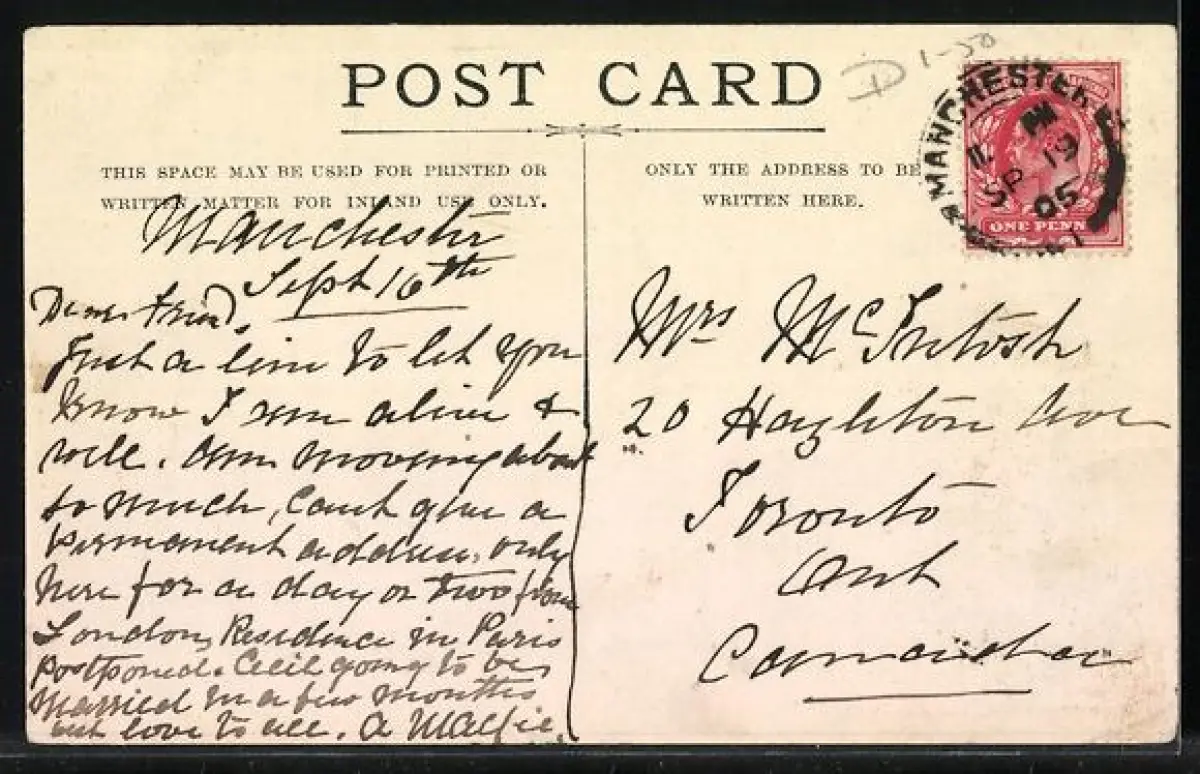 POST CARD
D 1-50
THIS SPACE MAY BE USED FOR PRINTED OR
WRITTEN MATTER FOR INLAND USE ONLY.
ONLY THE ADDRESS TO BE
WRITTEN HERE.
MANCHESTER
PM
SP 19
05
ONE PENN
Manchester
Sept 16th
Dear Friend,
Just a line to let you
know I am alive &
well. am moving about
so much, Cant give a
permanent address, only
here for a day or two from
London, Residence in Paris
postponed. Cecil going to be
Married in a few months
love to all. A
Mrs McIntosh
20 Ave
Toronto
Ont
Canada